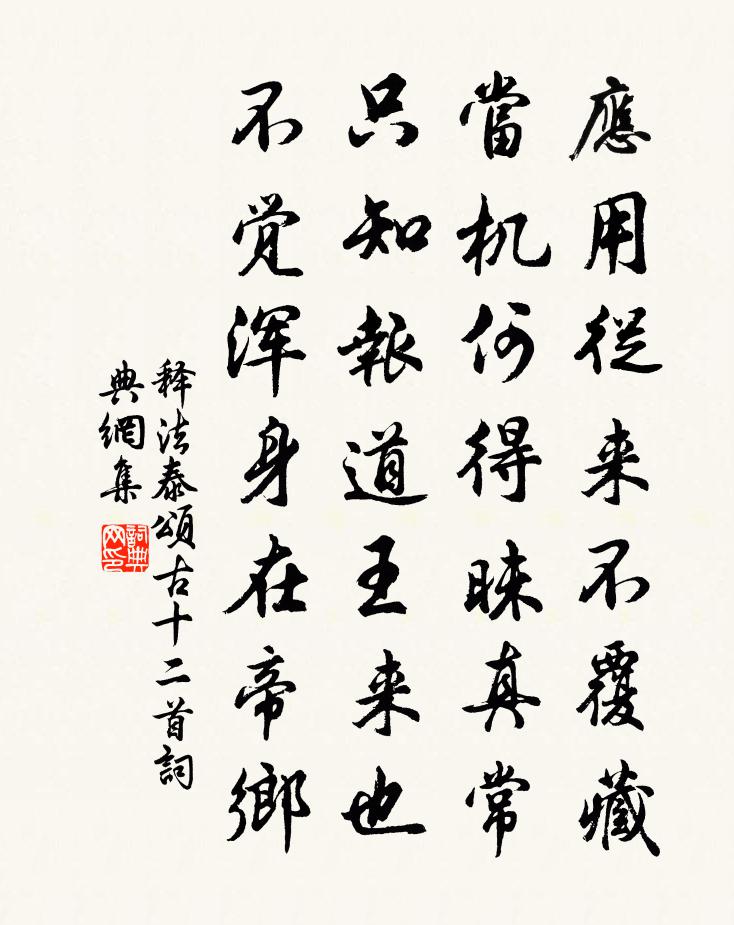 應用從来不覆藏
當机何得昧真常
只知報道王来也
不覚浑身在帝鄉
释法泰頌古十二首詞
典網集
詞典网印